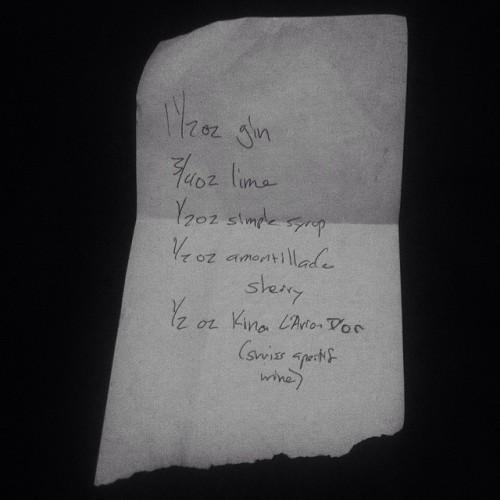 1 1/2 oz gin
3/4 oz lime
1/2 oz simple syrup
1/2 oz amontillado
sherry
1/2 oz Kina L'Avion D'or
(swiss aperitif
wine)